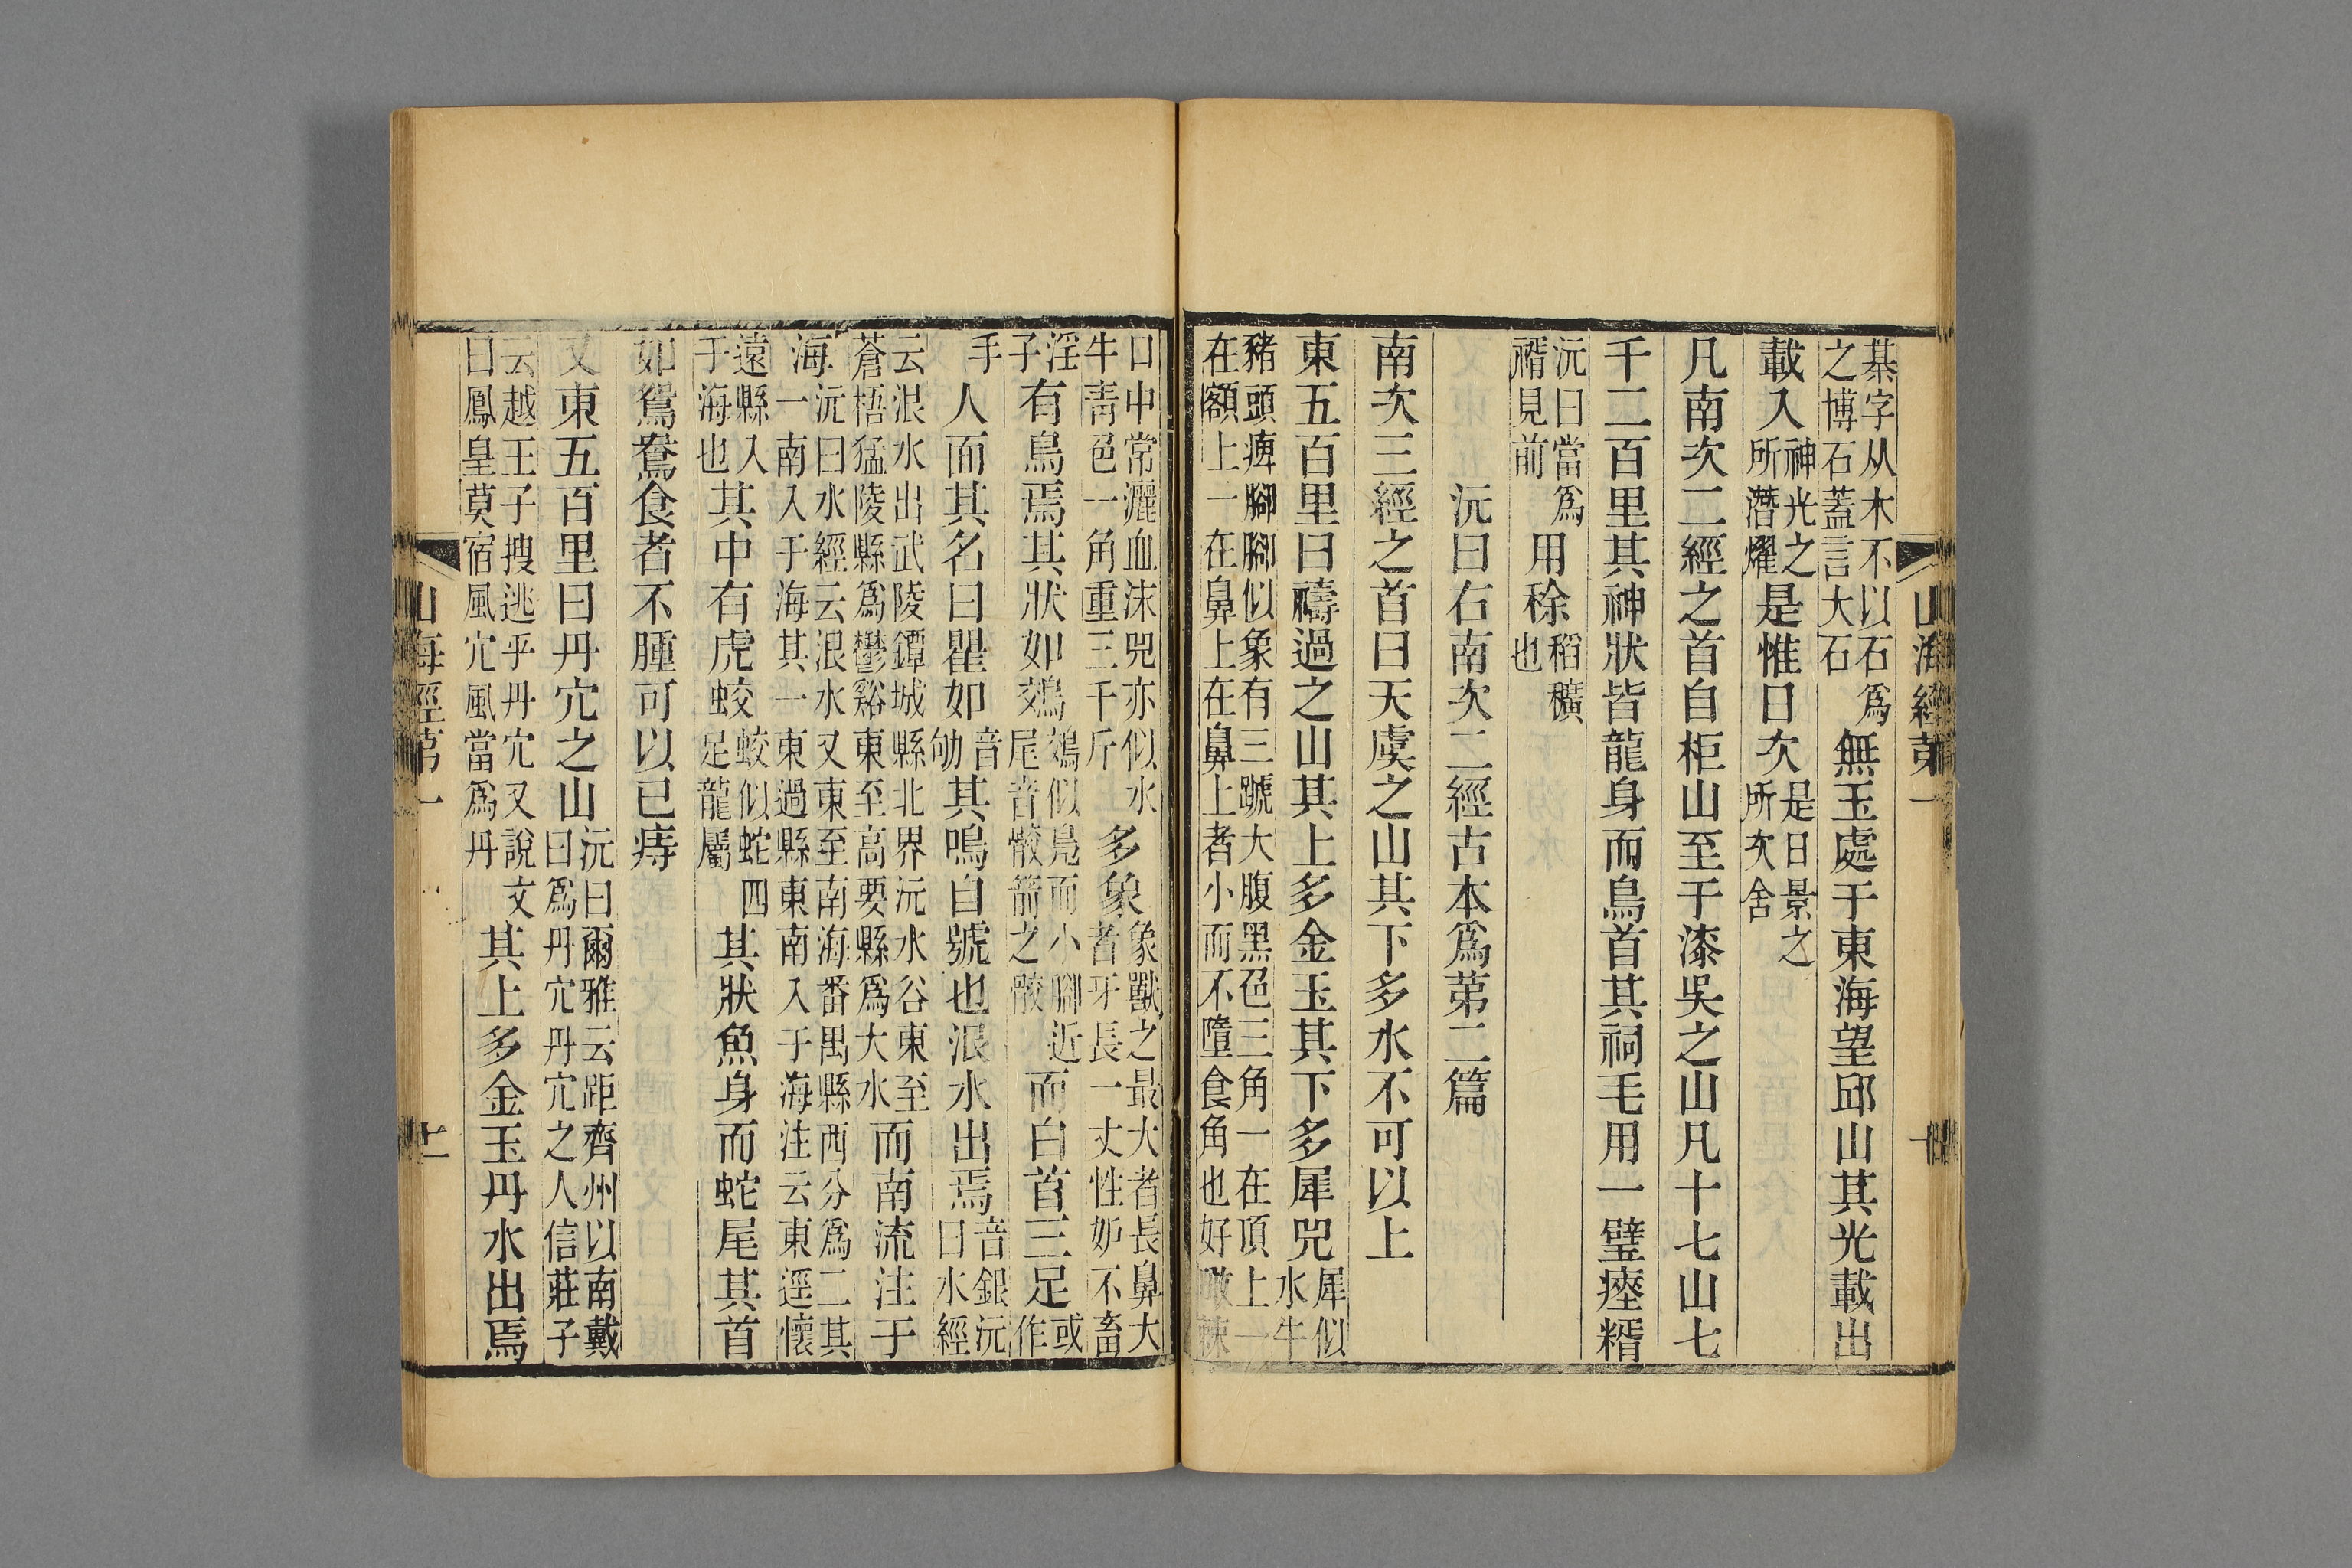 山海經第一
綦字从木不以石爲
之博石蓋言大石
無玉處于東海望邱山其光載出
載入
神光之
所潛燿
是惟日次
是日景之
所次舍
凡南次二經之首自柜山至于漆吳之山凡十七山七
千二百里其神狀皆龍身而鳥首其祠毛用一璧瘞糈
沅曰當爲
糈見前
用稌
稻穬
也
沅曰右南次二經古本爲第二篇
南次三經之首曰天虞之山其下多水不可以上
東五百里曰禱過之山其上多金玉其下多犀兕
犀似
水牛
豬頭痺腳腳似象有三蹏大腹黑色三角一在頂上一
在額上一在鼻上在鼻上者小而不墮食角也好噉棘
口中常灑血沫兕亦似水
牛靑色一角重三千斤
多象
象獸之最大者長鼻大
者牙長一丈性妒不畜
淫
子
有鳥焉其狀如鵁
鵁似鳧而小腳近
尾音骹箭之骹
而白首三足
或
作
手
人而其名曰瞿如
音
劬
其鳴自號也浪水出焉
音銀沅
曰水經
云浪水出武陵鐔城縣北界沅水谷東至
蒼梧猛陵縣爲鬱谿東至高要縣爲大水
而南流注于
海
沅曰水經云浪水又東至南海番禺縣西分爲二其
一南入于海其一東過縣東南入于海注云東逕懷
遠縣入
于海也
其中有虎蛟
蛟似蛇四
足龍屬
其狀魚身而蛇尾其首
如鴛鴦食者不腫可以已痔
又東五百里曰丹穴之山
沅曰爾雅云距齊州以南戴
日爲丹穴丹穴之人信莊子
云越王子搜逃乎丹穴又說文
曰鳳皇莫宿風穴風當爲丹
其上多金玉丹水出焉
山海經第一
十一